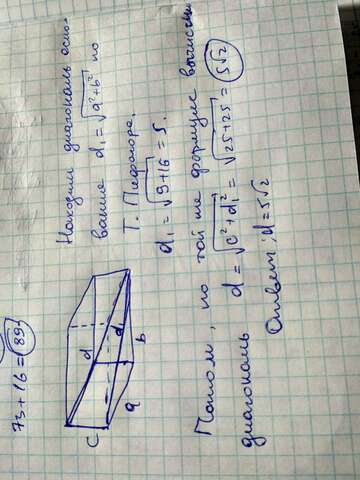 73 + 16 = 89
Находим диагональ осно-
вания d₁ = √a²+b² по
Т. Пифагора.
d₁ = √9+16 = 5.
d
d
c
a
b
Потом, по той же формуле вычислим
диагональ d = √c²+d₁² = √25+25 = 5√2
Ответ: d = 5√2